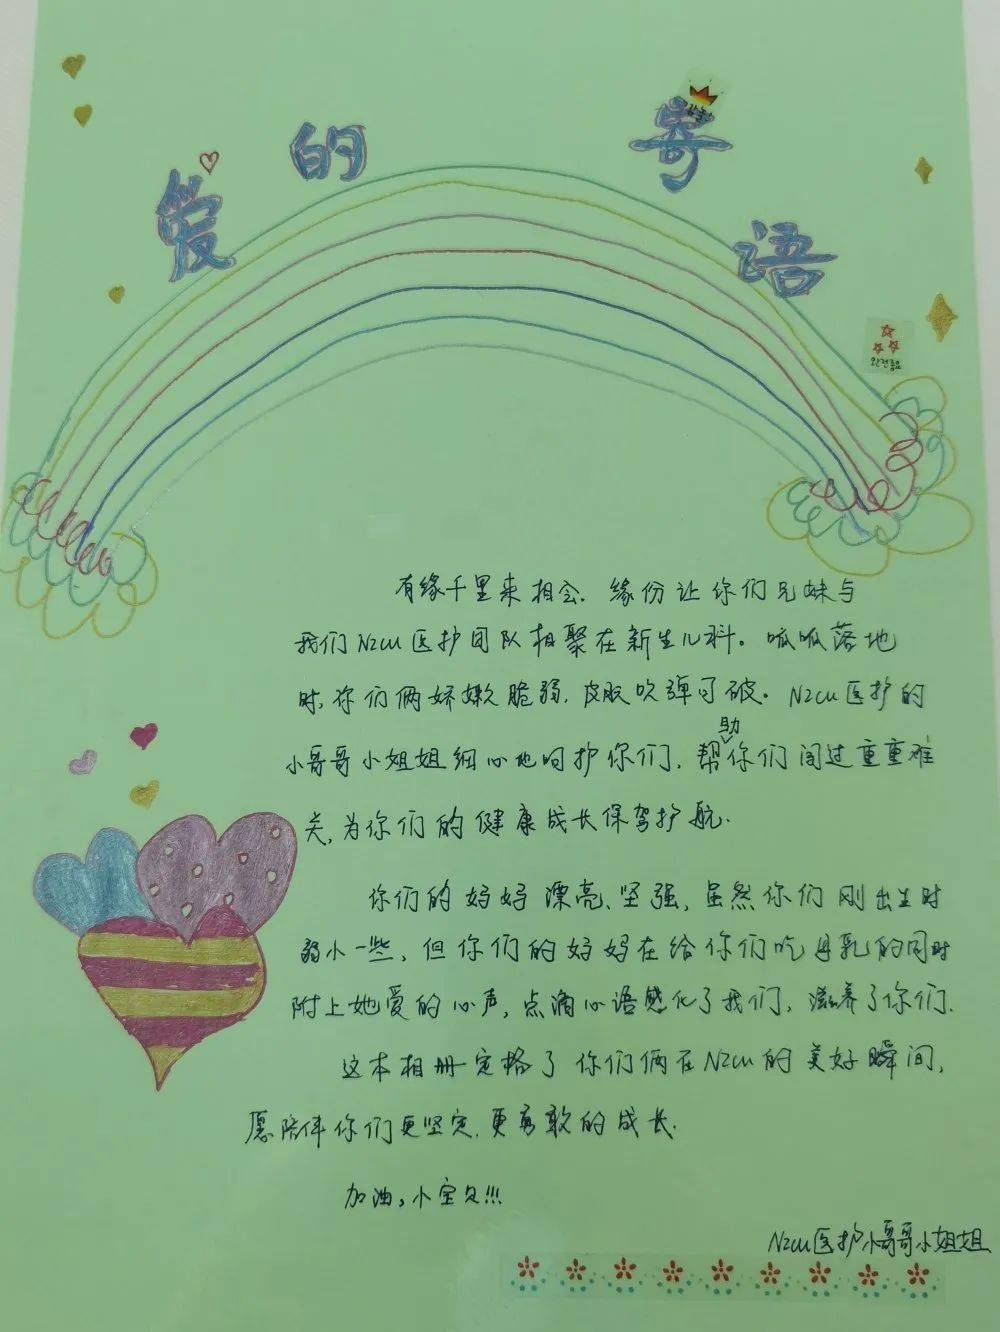 爱的寄语
완전좋요
有缘千里来相会.缘份让你们兄妹与
我们Nzcu医护团队相聚在新生儿科。呱呱落地
时,你们俩娇嫩脆弱,皮肤吹弹可破。Nzcu医护的
小哥哥小姐姐细心地呵护你们,帮助你们闯过重重难
关,为你们的健康成长保驾护航.
你们的妈妈漂亮、坚强,虽然你们刚出生时
弱小一些,但你们的妈妈在给你们吃母乳的同时
附上她爱的心声,点滴心语感化了我们,滋养了你们.
这本相册定格了你们俩在Nzcu的美好瞬间,
愿陪伴你们更坚定、更勇敢的成长.
加油,小宝贝!!!
Nzcu医护小哥哥小姐姐